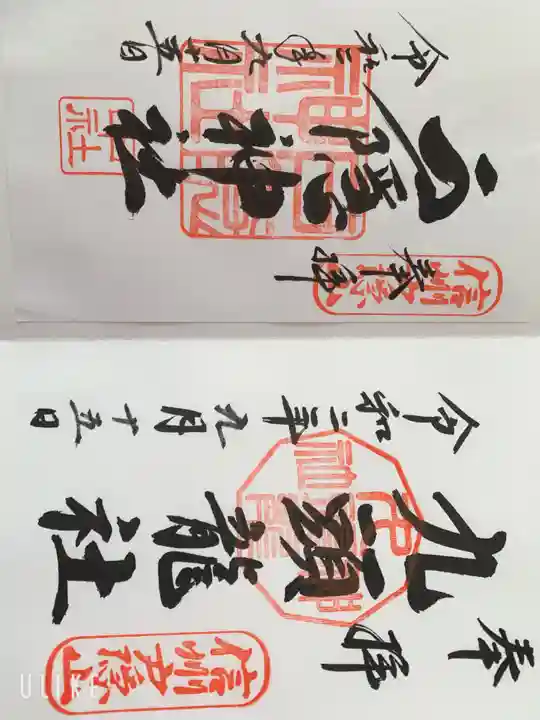 奉拝
信州戸隠山
九頭龍社
令和二年九月十五日
奉拝
信州戸隠山
戸隠神社
中社
令和二年九月十五日
ULIKE